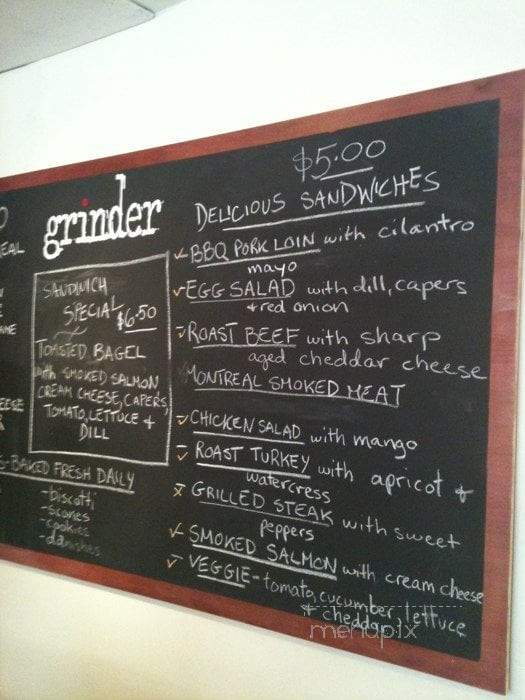 grinder
SANDWICH
SPECIAL $6.50
TOASTED BAGEL
with SMOKED SALMON
CREAM CHEESE, CAPERS,
TOMATO, LETTUCE +
DILL
-BAKED FRESH DAILY
-biscotti
-scones
-cookies
-danishes
$5.00
DELICIOUS SANDWICHES
BBQ PORK LOIN with cilantro
mayo
EGG SALAD with dill, capers
+ red onion
ROAST BEEF with sharp
aged cheddar cheese
MONTREAL SMOKED MEAT
CHICKEN SALAD with mango
ROAST TURKEY with apricot +
watercress
GRILLED STEAK with sweet
peppers
SMOKED SALMON with cream cheese
VEGGIE - tomato, cucumber, lettuce
+ cheddar
menupix